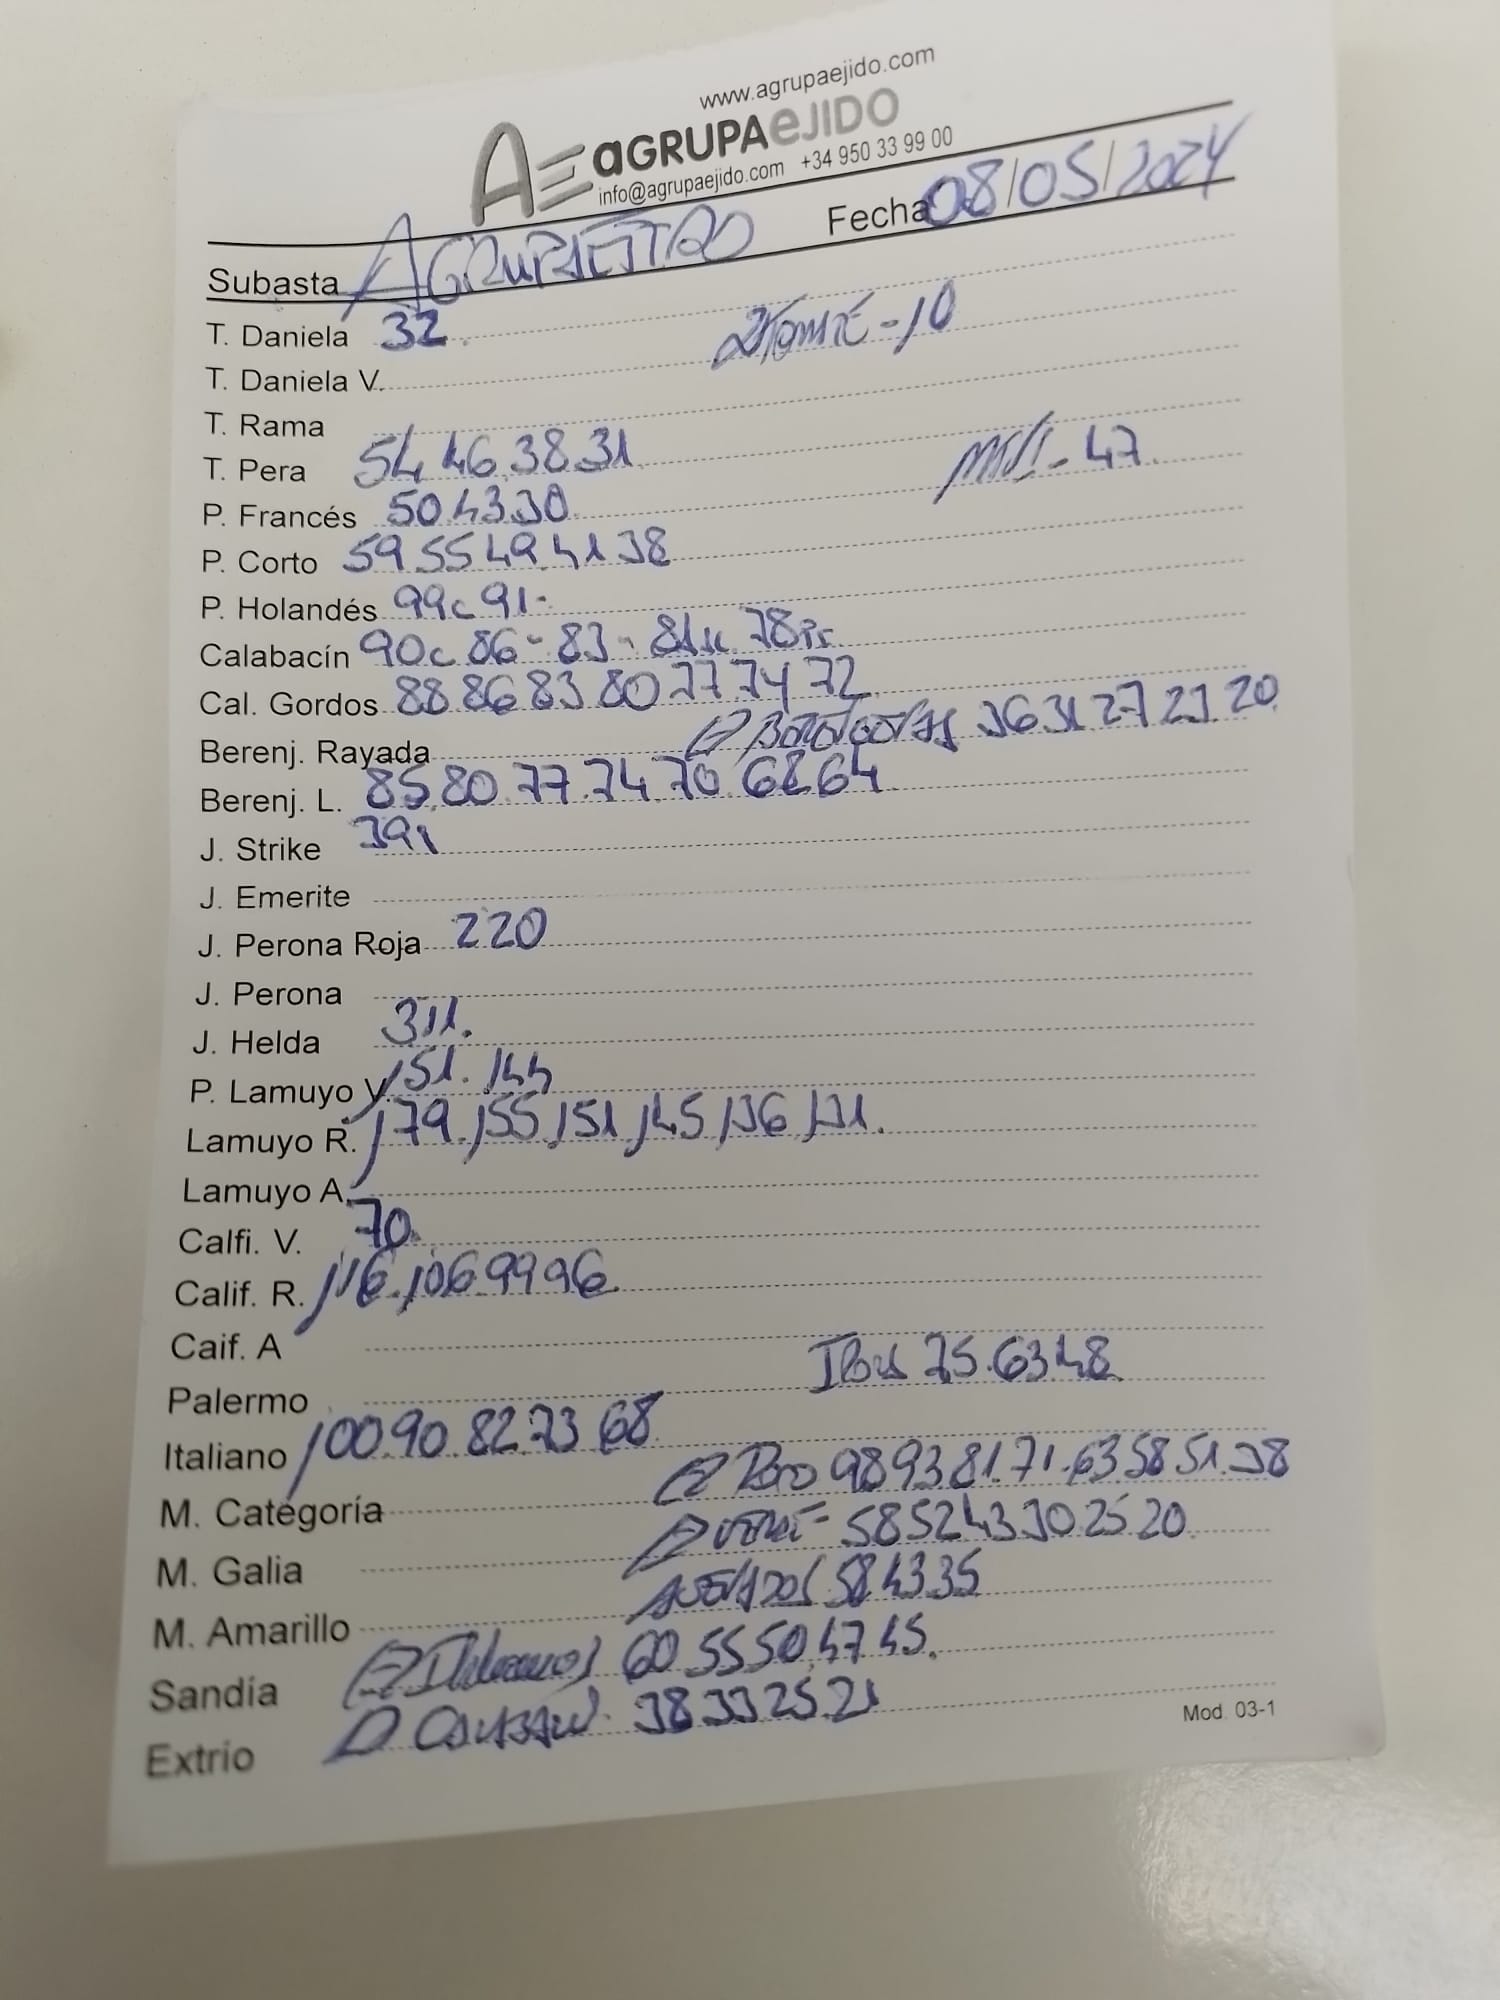 www.agrupaejido.com
AE aGRUPAeJIDO
info@agrupaejido.com +34 950 33 99 00
Subasta AGRUPAEJIDO Fecha 08/05/2024
T. Daniela 32. -10
T. Daniela V.
T. Rama
T. Pera 54 46.38.31 - 47
P. Francés 50.43.30.
P. Corto 59.55 49.41 38
P. Holandés 99c 91-
Calabacín 90c 86- 83- 81 78
Cal. Gordos 88 86 83 80 77 74 72
Berenj. Rayada 36 31 27 23. 20
Berenj. L. 85.80.77.74.70.68.64
J. Strike 391
J. Emerite
J. Perona Roja 220
J. Perona
J. Helda 311.
P. Lamuyo V. 151. 144
Lamuyo R. 179. 155 151 145 136 131.
Lamuyo A.
Calfi. V. 70.
Calif. R. 116.106.99 96
Caif. A
Palermo 75.63.48
Italiano 100.90.82.73 68
M. Categoría 98 93 81.71.63 58 51.38
M. Galia 58 52 43 30 25 20
M. Amarillo 58 43.35
Sandia 60 55 50.47 45.
Extrio 38 33 25.21
Mod. 03-1